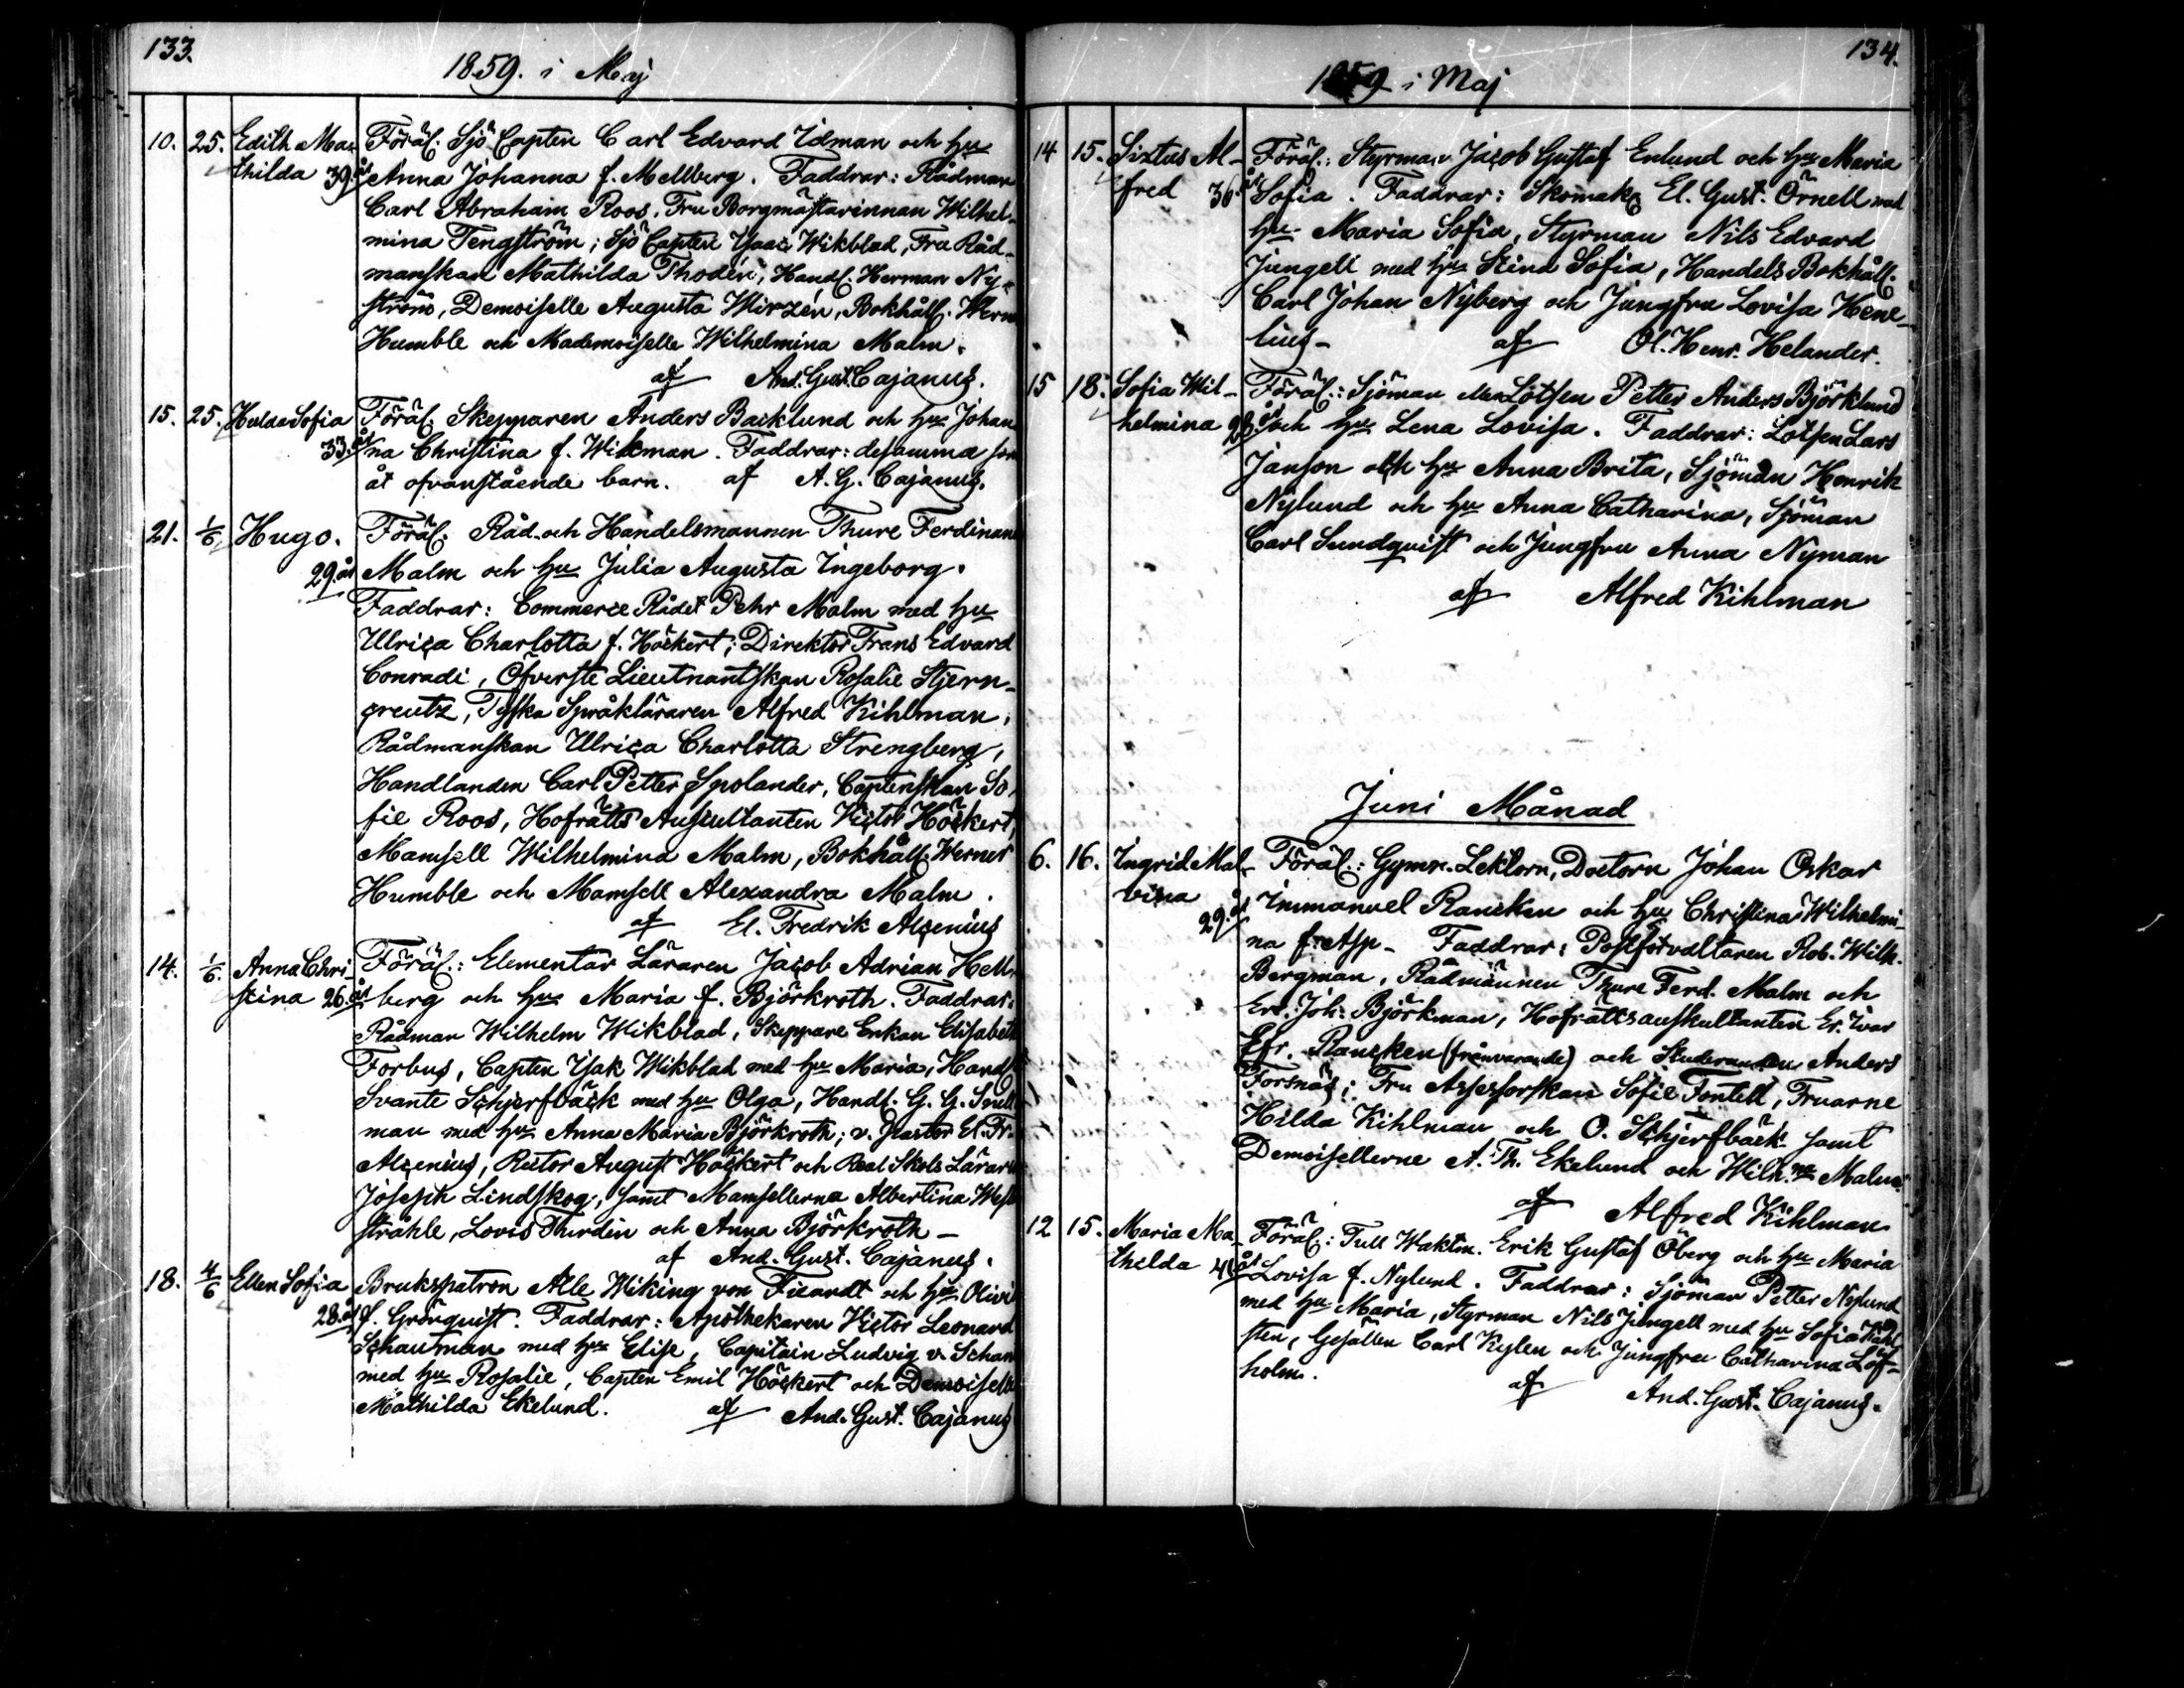 133.
1859. i Maj
10. 25. Edith Ma- Föräl. Sjö Capten Carl Edvard Idman och hu
thilda 39. år Anna Johanna f. Mellberg. Faddrar: Rådman
Carl Abraham Roos, Fru Borgmästarinnan Wilhel-
mina Tengström; Sjö Capten Isac Wikblad, Fru Råd-
manskan Mathilda Thodén, Handl. Herman Ny-
ström, Demoiselle Augusta Wirzén, Bokhåll. Wern
Humble och Mademoiselle Wilhelmina Malm.
af And. Gust. Cajanus.
15. 25. Hulda Sofia Föräl. Skepparen Anders Backlund och hu Johan
33. år na Christina f. Wikman. Faddrar: desamma som
åt ofvanstående barn. af A. G. Cajanus.
21. 1/6 Hugo. Föräl. Råd- och Handelsmannen Thure Ferdinan
29. år Malm och hu Julia Augusta Ingeborg.
Faddrar: Commerce Rådet Pehr Malm med hu
Ulrica Charlotta f. Höckert; Direktor Frans Edvard
Conradi, Öfverste Lieutnantskan Rosalie Stjern-
creutz, Tyska Språkläraren Alfred Kihlman,
Rådmanskan Ulrica Charlotta Strengberg,
Handlanden Carl Petter Spolander, Captenskan So-
fie Roos, Hofrätts Auscultanten Victor Höckert,
Mamsell Wilhelmina Malm, Bokhåll. Werner
Humble och Mamsell Alexandra Malm.
af El. Fredrik Alcenius
14. 1/6. Anna Chri- Föräl.: Elementar Läraren Jacob Adrian Hell-
stina 26. år berg och hu Maria f. Björkroth. Faddrar:
Rådman Wilhelm Wikblad, Skeppare Enkan Elisabeth
Forbus, Capten Isak Wikblad med hu Maria, Handl.
Svante Schjerfbäck med hu Olga, Handl. G. G. Snell
man med hu Anna Maria Björkroth; v. Pastor El. Fr.
Alcenius, Rector August Höckert och Real Skols Lärare
Joseph Lindskog, samt Mamsellerna Albertina West
stråhle, Lovis Thurdin och Anna Björkroth –
af And. Gust. Cajanus.
18. 4/6 Ellen Sofia Brukspatron Alle Wiking von Fieandt och hu Olivi
28. år f. Grönquist. Faddrar: Apothekaren Victor Leonard
Schauman med hu Elise, Capitain Ludvig v. Schan
med hu Rosalie, Capten Emil Höckert och Demoiselle
Mathilda Ekelund. af And. Gust. Cajanus
134.
1859 i Maj
14 15. Sixtus Al- Föräl.: Styrman Jacob Gustaf Enlund och hu Maria
fred 36. år Sofia. Faddrar: Skomak. El. Gust. Örnell med
hu Maria Sofia, Styrman Nils Edvard
Jungell med hu Stina Sofia, Handels Bokhåll.
Carl Johan Nyberg och Jungfru Lovisa Hene-
lius – af Ol. Henr. Helander.
15 18. Sofia Wil- Föräl.: Sjöman Lotsen Petter Anders Björklund
helmina 28 år och hu Lena Lovisa. Faddrar: Lotsen Lars
Janson och hu Anna Brita, Sjöman Henrik
Nylund och hu Anna Catharina, Sjöman
Carl Sundquist och Jungfru Anna Nyman
af Alfred Kihlman
Juni Månad
6. 16. Ingrid Mal- Föräl.: Gymn. Lektorn, Doctorn Johan Oskar
vina 29. år Immanuel Rancken och hu Christina Wilhelmi-
na f. Asp – Faddrar: Postförvaltaren Rob. Wilh.
Bergman, Rådmännen Thure Ferd. Malm och
Er. Joh. Björkman, Hofrättsauskultanten Er. Ivar
Efr. Rancken (frånvarande) och Studeranden Anders
Forsnäs; Fru Assessorskan Sofie Fontell, Fruarne
Hilda Kihlman och O. Schjerfbäck samt
Demoisellerne A. Th. Ekelund och Wilh:na Malm.
af Alfred Kihlman
12 15. Maria Ma- Föräl.: Tull Waktm. Erik Gustaf Öberg och hu Maria
thilda 41 år Lovisa f. Nylund. Faddrar: Sjöman Petter Nylund
med hu Maria, Styrman Nils Jungell med hu Sofia
sten, Gesällen Carl Kylen och Jungfru Catharina Löf-
holm. af And. Gust. Cajanus.